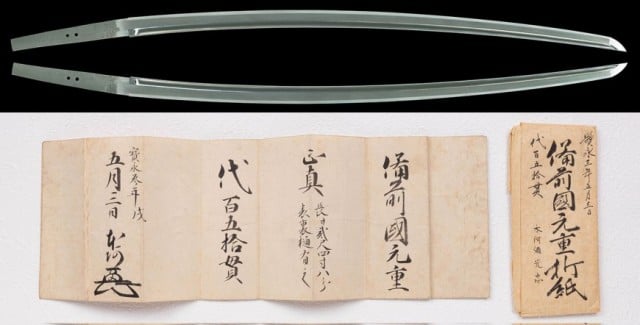 備前國元重
正真 長サ貳尺四寸八分
表裏樋有之
代百五拾貫
寳永参年戌
五月三日 本阿
寳永三年五月三日
備前國元重折紙
代百五拾貫
本阿弥光忠